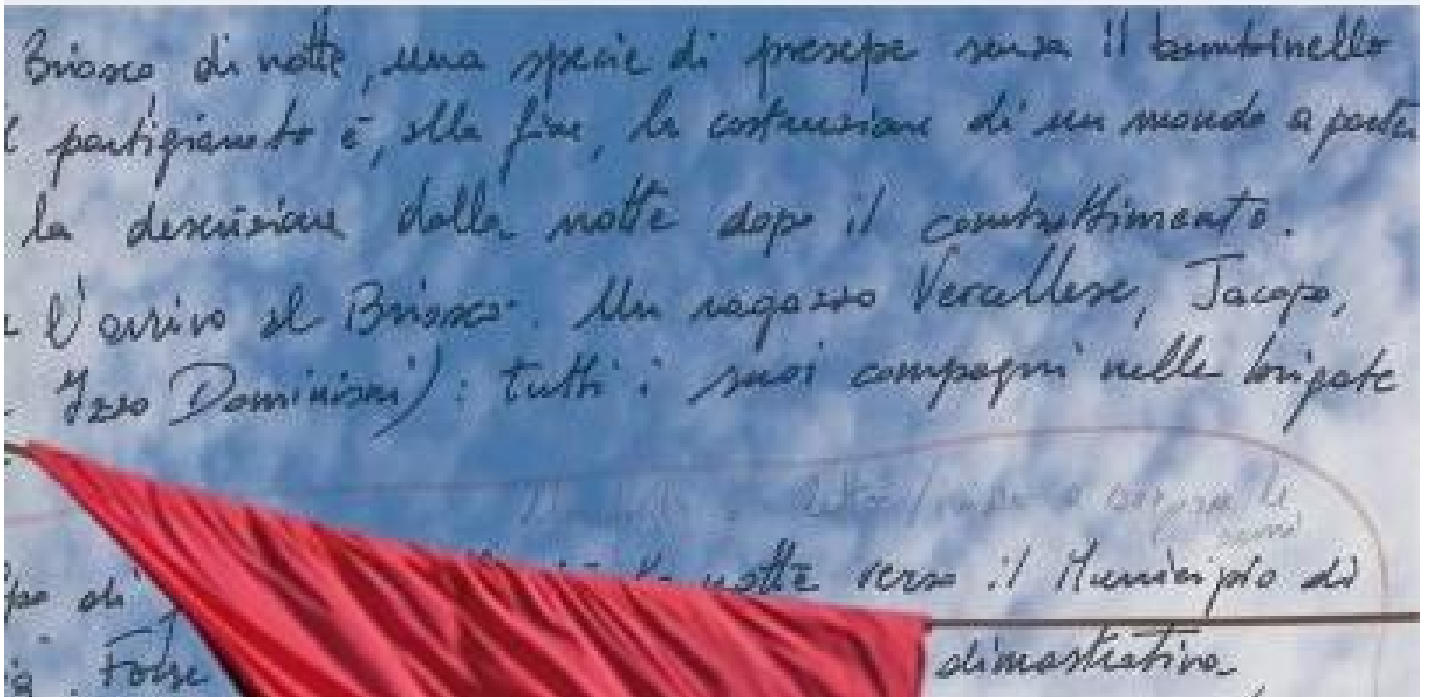 Briasco di notte, una specie di presepe senza il bambinello
l partigianato è, alla fine, la costruzione di un mondo a parte
la descrizione della notte dopo il combattimento.
l'arrivo al Briasco. Un ragazzo Vercellese, Jacopo,
Dominioni) : tutti i suoi compagni nelle brigate
notte verso il Municipio di
Forse dimostrativa